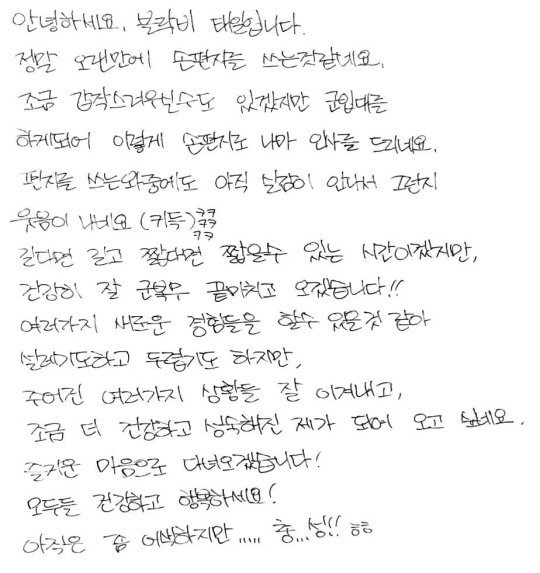 안녕하세요. 블락비 태일입니다.
정말 오랜만에 손편지를 쓰는것같네요.
조금 갑작스러우실수도 있겠지만 군입대를
하게되어 이렇게 손편지로 나마 인사를 드리네요.
편지를 쓰는와중에도 아직 실감이 안나서 그런지
웃음이 나네요 (키득) ㅋㅋㅋㅋㅋㅋ
길다면 길고 짧다면 짧을수 있는 시간이겠지만,
건강히 잘 군복무 끝마치고 오겠습니다!!
여러가지 새로운 경험들을 할수 있을것 같아
설레기도하고 두렵기도 하지만,
주어진 여러가지 상황들 잘 이겨내고,
조금 더 건강하고 성숙해진 제가 되어 오고 싶네요.
즐거운 마음으로 다녀오겠습니다!
모두들 건강하고 행복하세요!
아직은 좀 어색하지만..... 충...성!! ㅎㅎ